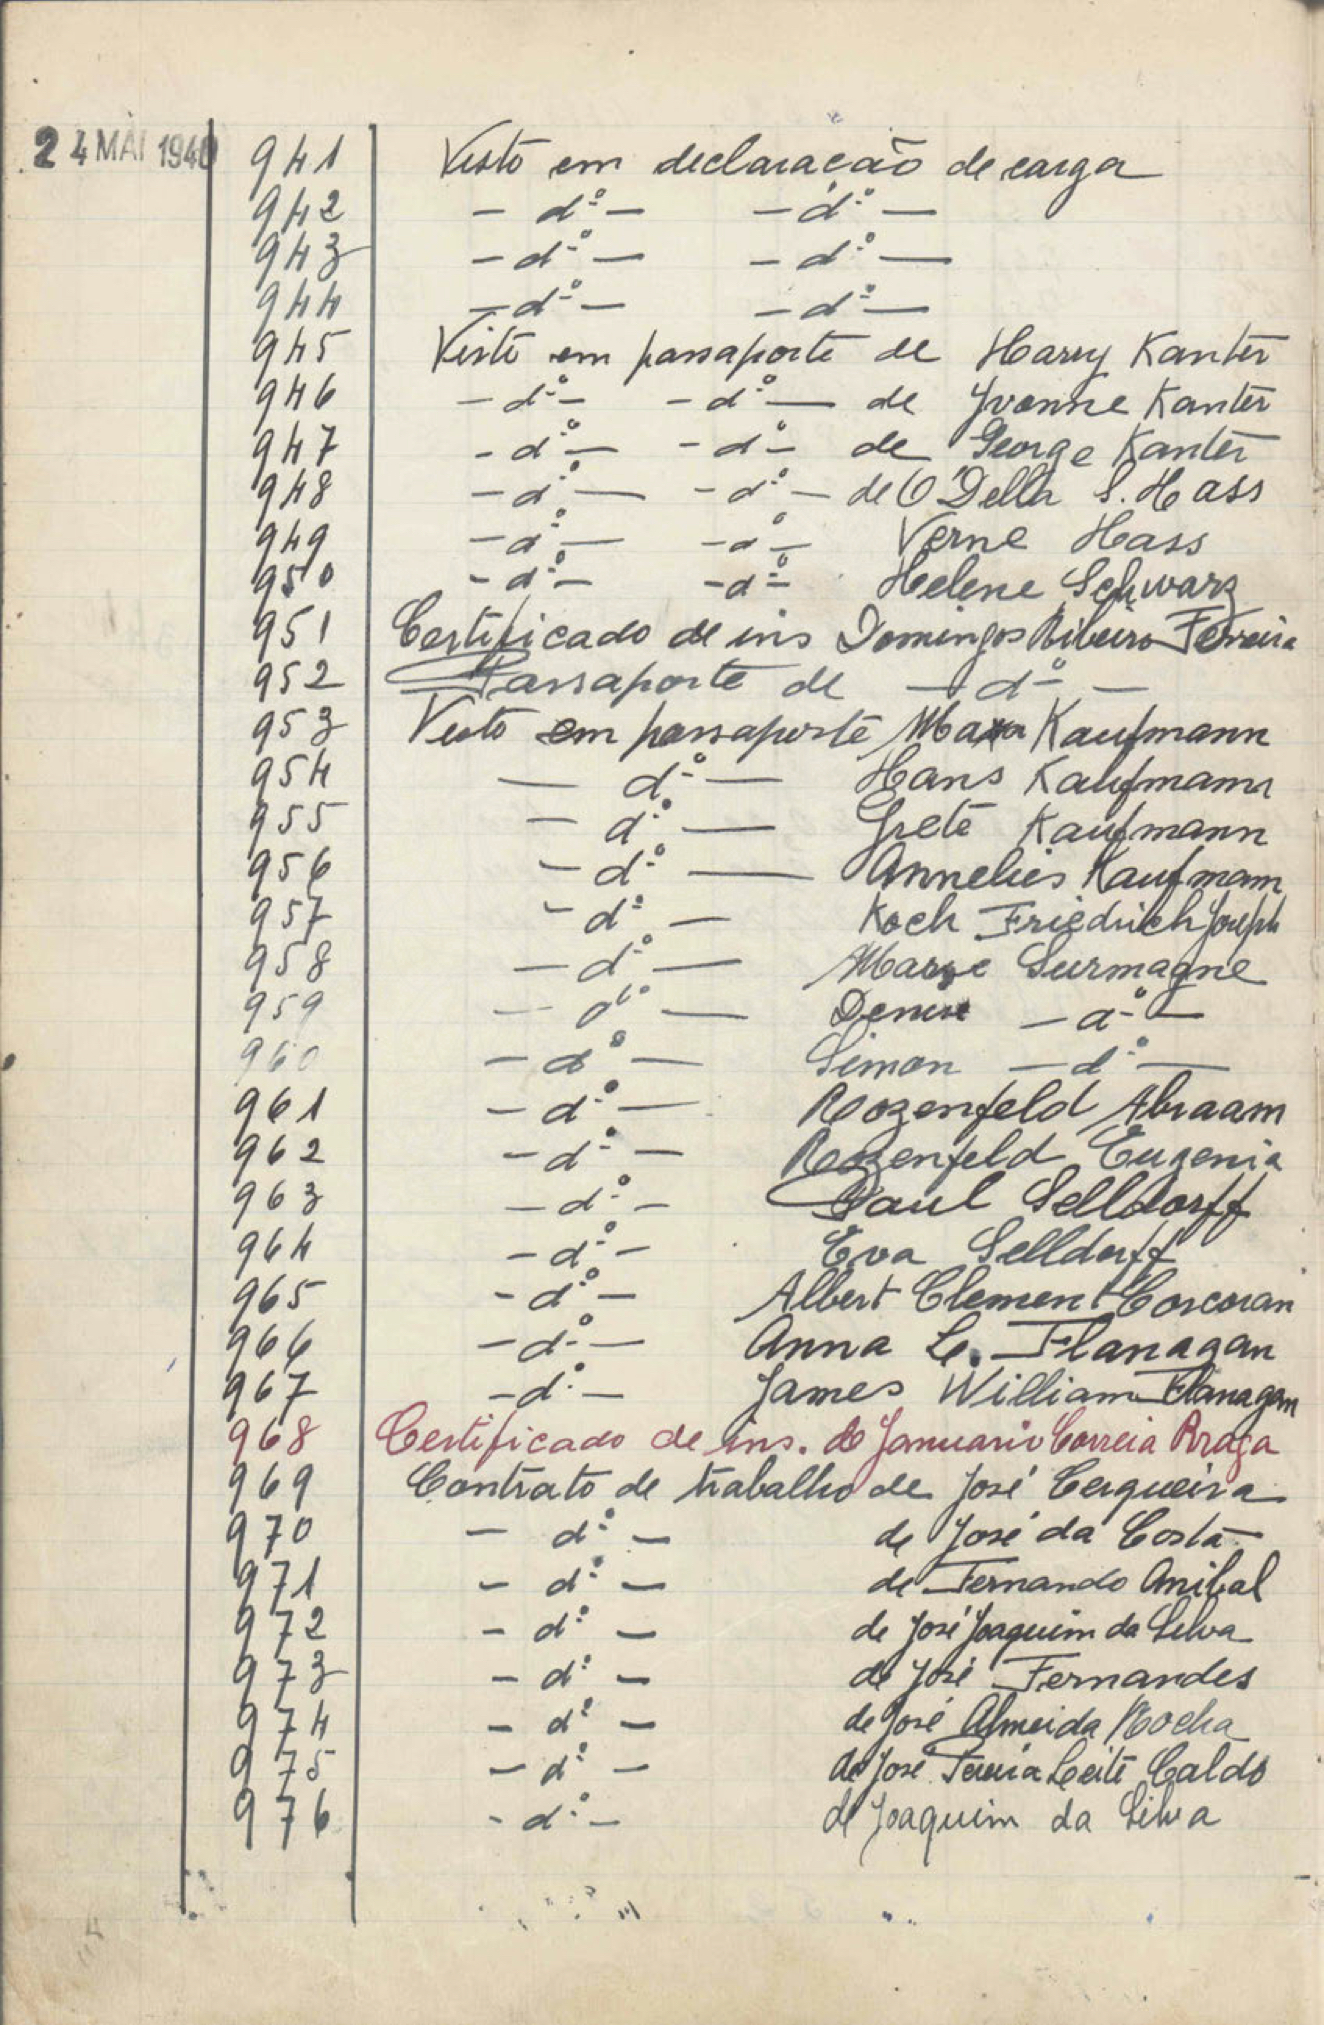 24 MAI 1940 941 Visto em declaração de carga
942 — dº — — dº —
943 — dº — — dº —
944 — dº — — dº —
945 Visto em passaporte de Harry Kanter
946 — dº — — dº — de Yvonne Kanter
947 — dº — — dº — de George Kanter
948 — dº — — dº — de O'Della S. Hass
949 — dº — — dº — Verne Hass
950 — dº — — dº — Helene Schwarz
951 Certificado de ins Domingos Ribeiro Ferreira
952 Passaporte de — dº —
953 Visto em passaporte Max Kaufmann
954 — dº — Hans Kaufmann
955 — dº — Grete Kaufmann
956 — dº — Annelies Kaufmann
957 — dº — Koch Friedrich Joseph
958 — dº — Surmagne
959 — dº — Denise — dº —
960 — dº — Simon — dº —
961 — dº — Rozenfeld Abraam
962 — dº — Rozenfeld Eugenia
963 — dº — Paul Selldorff
964 — dº — Eva Selldorff
965 — dº — Albert Clement Corcoran
966 — dº — Anna L. Flanagan
967 — dº — James William Flanagan
968 Certificado de ins. de Januario Correia Braga
969 Contrato de trabalho de José Cerqueira
970 — dº — de José da Costa
971 — dº — de Fernando Anibal
972 — dº — de José Joaquim da Silva
973 — dº — de José Fernandes
974 — dº — de José Almeida Rocha
975 — dº — de José Leite Caldo
976 — dº — de Joaquim da Silva